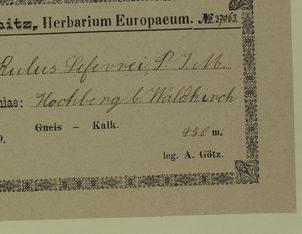 bitz, Herbarium Europaeum. № 37063
Rubus Lefevrei, P. J. M.
niae: Hochberg b. Waldkirch
Gneis – Kalk.
9. 450 m.
leg. A. Götz.